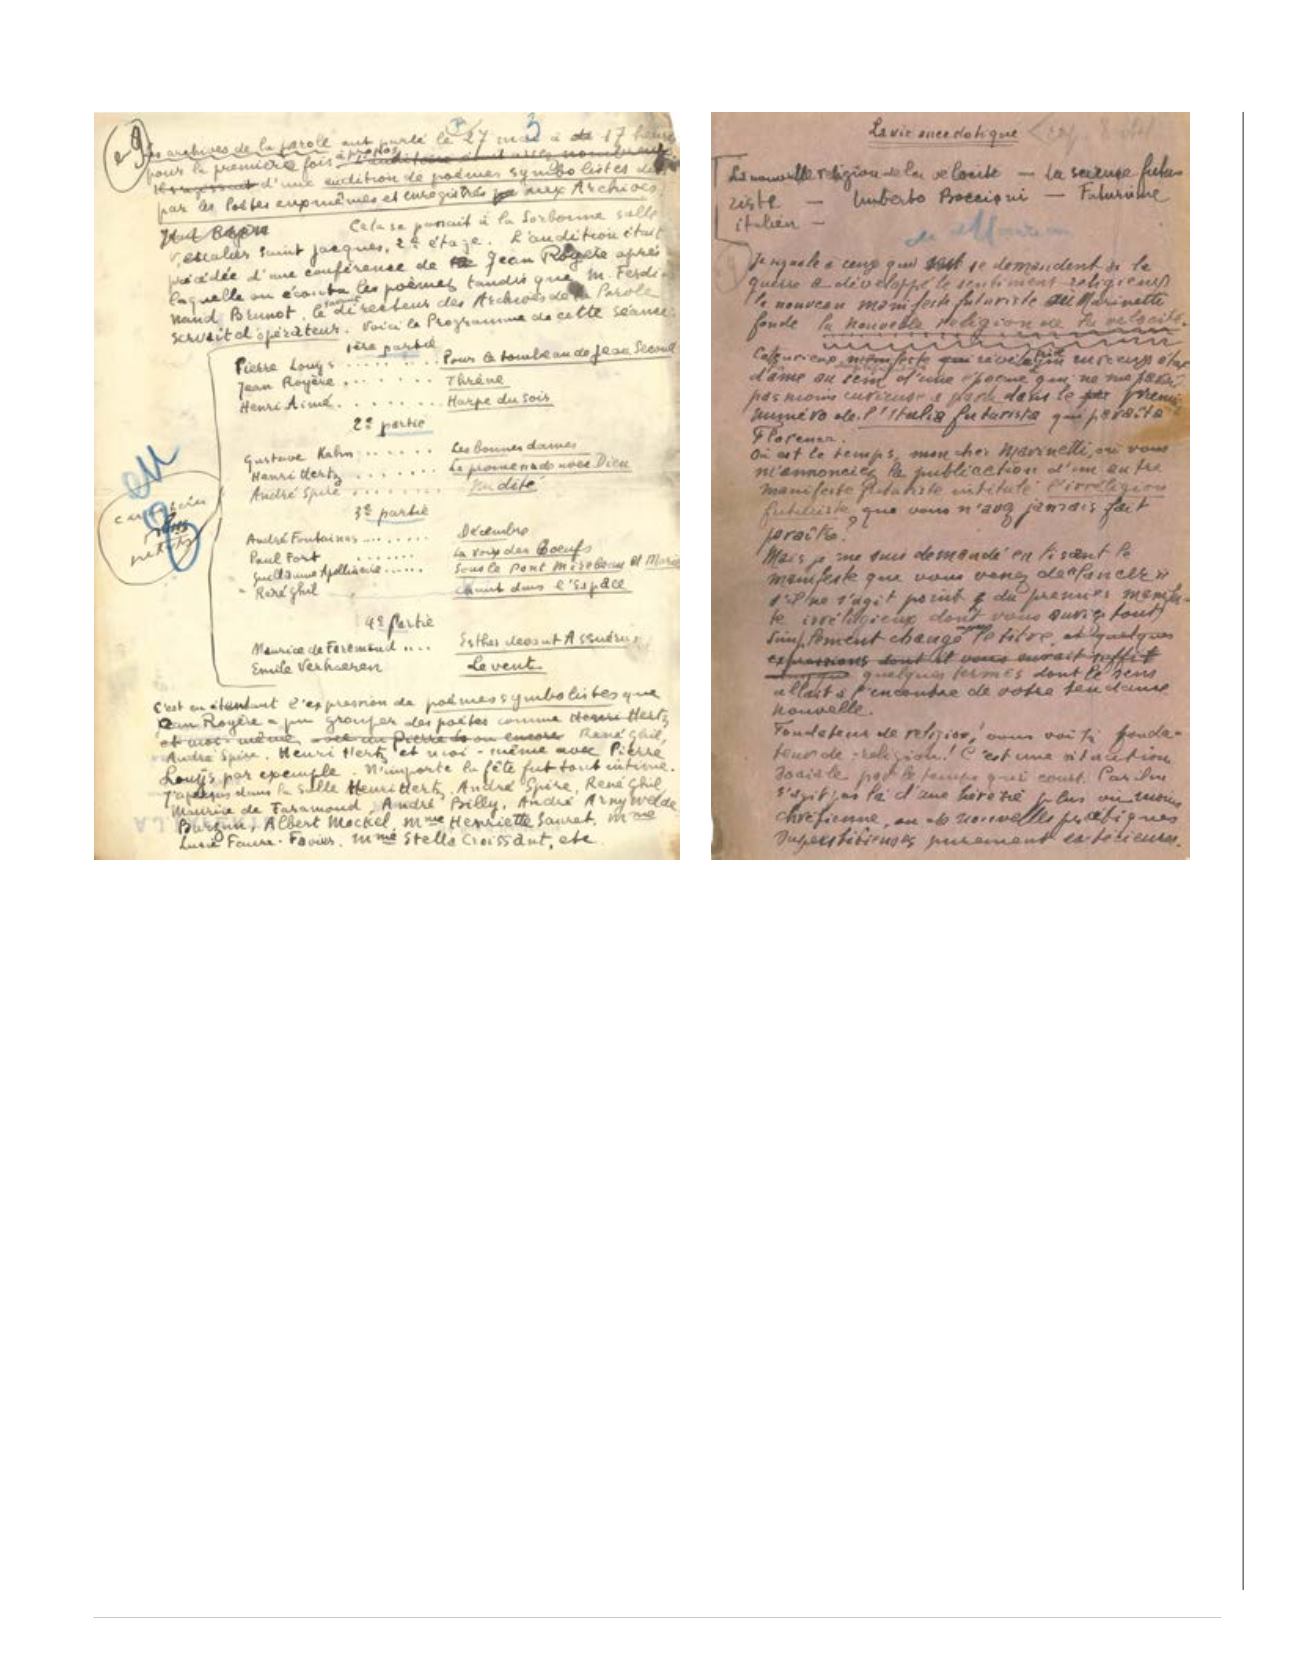 Les archives de la parole ont parlé le 27 mai à 17 heures
pour la première fois à propos
d'une audition de poèmes symbolistes dits
par les Poètes eux-mêmes et enregistrés aux Archives.
Cela se passait à la Sorbonne salle
escalier Saint Jacques, 2e étage. L'audition était
précédée d'une conférence de Jean Royère après
laquelle on écouta les poèmes tandis que M. Ferdi-
nand Brunot, le savant directeur des Archives de la Parole
servait d'opérateur. Voici le Programme de cette séance:
1ère partie
Pierre Louys ....... Pour le tombeau de Jean Second
Jean Royère ....... Thrène
Henri Aimé ....... Harpe du soir
2e partie
Gustave Kahn ...... Les bonnes dames
Henri Hertz ....... La promenade avec Dieu
André Spire ....... Nudité
3e partie
André Fontainas ....... Décembre
Paul Fort ....... La voix des Boeufs
Guillaume Apollinaire ..... Sous le Pont Mirabeau et Marie
René Ghil chant dans l'Espace
4e Partie
Maurice de Faramond .... Esther devant Assuérus
Emile Verhaeren Le vent.
en
8
petits
C'est en étendant l'expression de poèmes symbolistes que
Jean Royère a pu grouper des poètes comme Henri Hertz
et moi-même, ou encore René Ghil,
André Spire, Henri Hertz et moi-même avec Pierre
Louÿs par exemple. N'importe la fête fut tout intime.
J'aperçus dans la salle Henri Hertz, André Spire, René Ghil
Maurice de Faramond, André Billy, André Arnyvelde
Barzun, Albert Mockel, Mme Henriette Sauret, Mme
Lucie Faure-Favier, Mme Stella Croissant, etc.
La vie anecdotique
La nouvelle religion de la vélocité — La science futu-
riste — Umberto Boccioni — Futurisme
italien —
Je signale à ceux qui se demandent si la
guerre a développé le sentiment religieux
le nouveau manifeste futuriste où Marinetti
fonde la nouvelle religion de la vélocité.
Ce curieux manifeste qui révèle un curieux état
d'âme au sein d'une époque qui ne me paraît
pas moins curieuse a paru dans le premier
numéro de l'Italia futurista qui paraît à
Florence.
Où est le temps, mon cher Marinetti, où vous
m'annonciez la publication d'un autre
manifeste futuriste intitulé l'irréligion
futuriste que vous n'avez jamais fait
paraître?
Mais je me suis demandé en lisant le
manifeste que vous venez de "lancer"
s'il ne s'agit point du premier manifes-
te irréligieux dont vous auriez tout
simplement changé le titre, et quelques
expressions dont il vous aurait suffit
quelques termes dont le sens
allait à l'encontre de votre tendance
nouvelle.
Fondateur de religion, vous voilà fonda-
teur de religion! C'est une situation
sociale par le temps qui court. Car il ne
s'agit pas là d'une hérésie plus ou moins
chrétienne, ou de nouvelles pratiques
superstitieuses purement extérieures.